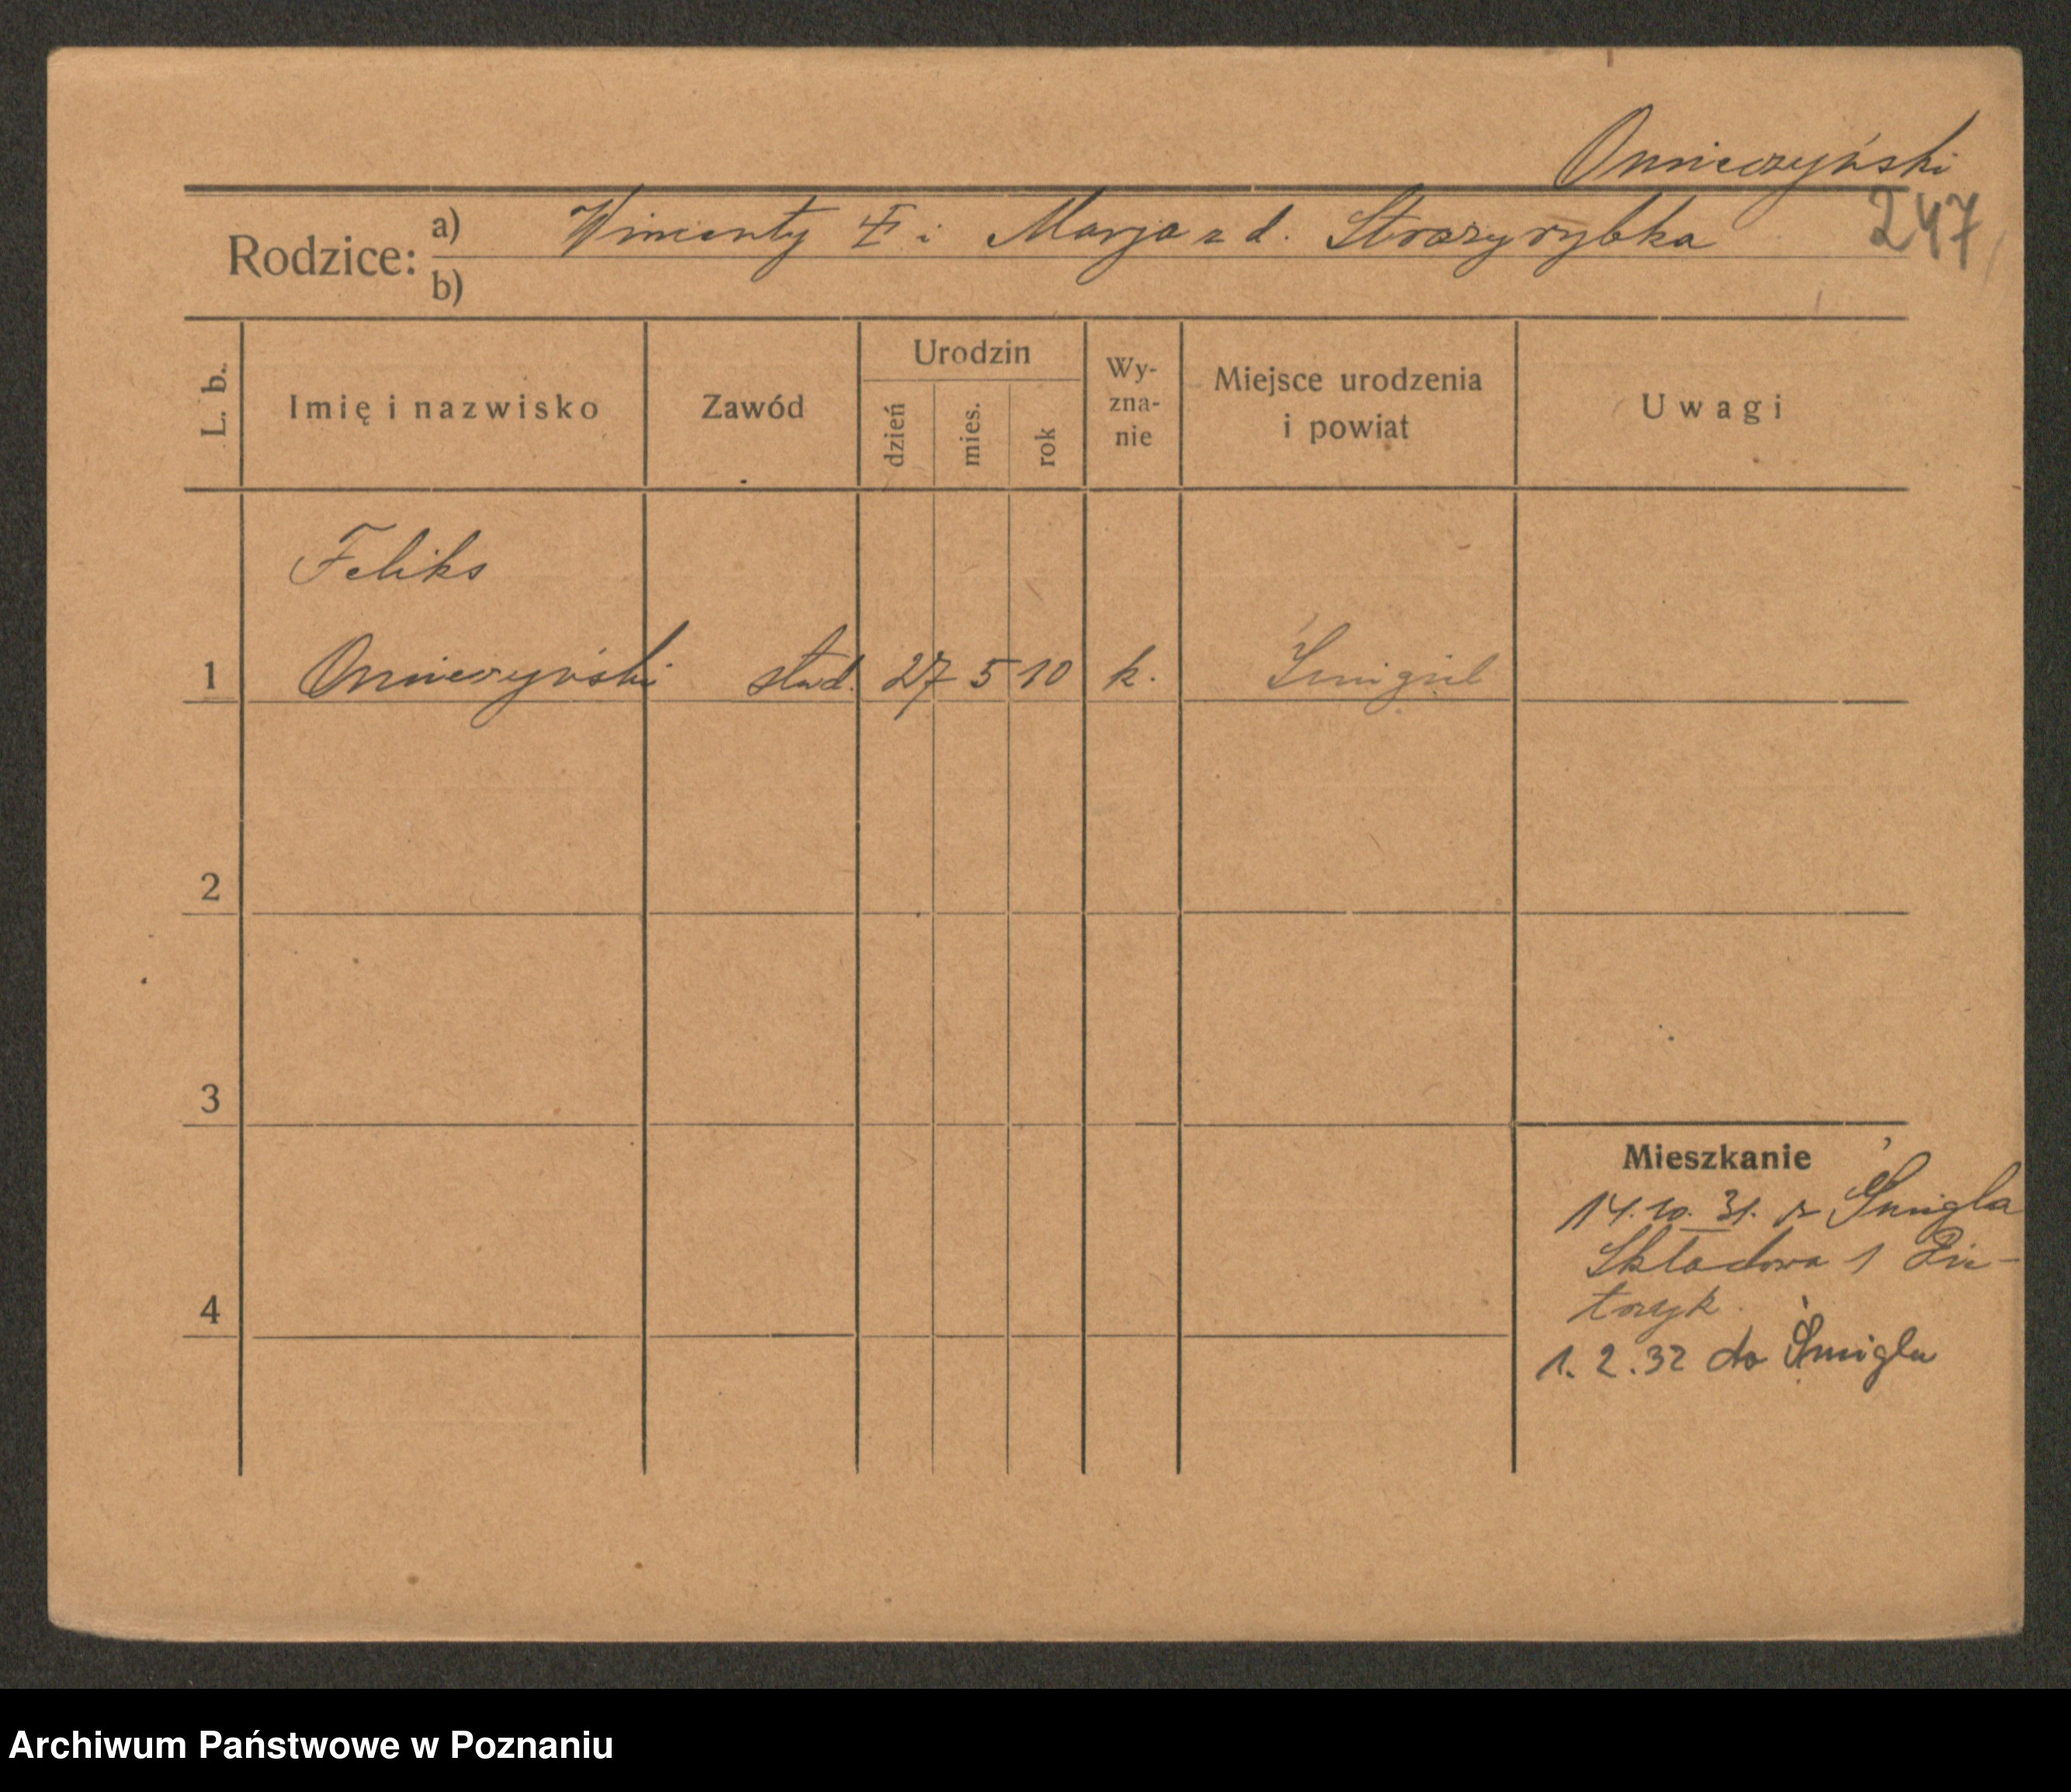 Omieczyński
247
Rodzice: a) Wincenty † i Marja z d. Strózyrybka
b)
L. b. Imię i nazwisko Zawód Urodzin dzień mies. rok Wyznanie Miejsce urodzenia i powiat Uwagi
Feliks
1 Omieczyński stud. 27 5 10 k. Śmigiel
2
3
Mieszkanie
14.10.31. z Śmigla
Składowa 1 Pie-
trzyk.
4
1.2.32 do Śmigla
Archiwum Państwowe w Poznaniu